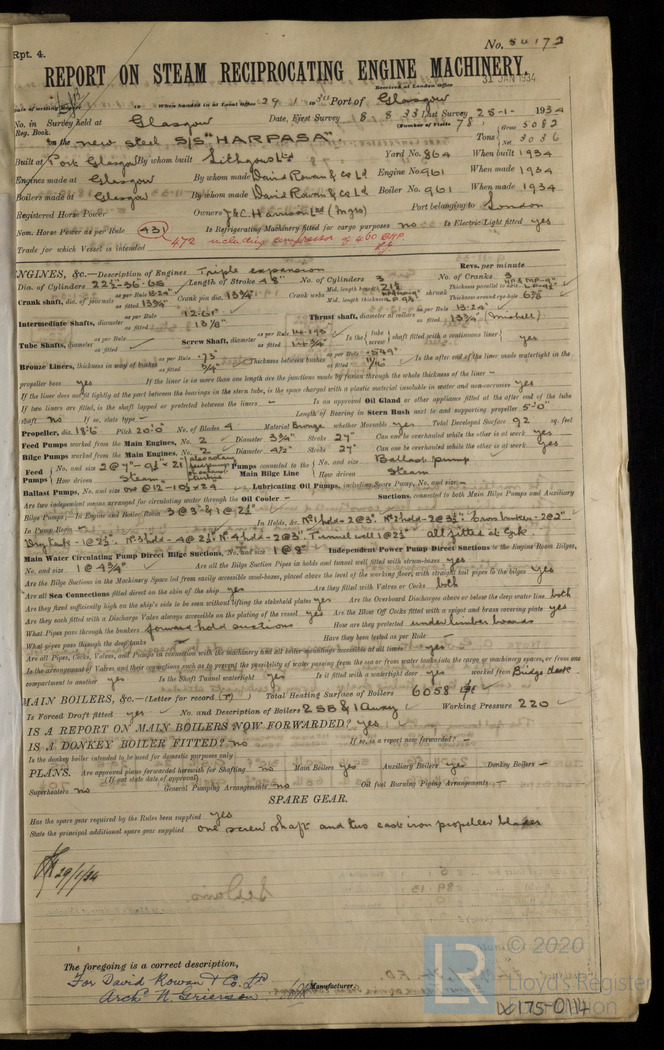 Rpt. 4.
No. 54172
REPORT ON STEAM RECIPROCATING ENGINE MACHINERY.
Received at London Office
31 JAN 1934
Date of writing Report 19 When handed in at Local Office 29.1.1934 Port of Glasgow
No. in Survey held at Glasgow Date, First Survey 8 8 33 Last Survey 25-1- 1934
Reg. Book. (Number of Visits 78)
on the new steel S/S "HARPASA" Tons Gross 5082 Net 3036
Built at Port Glasgow By whom built Lithgows Ltd Yard No. 864 When built 1934
Engines made at Glasgow By whom made David Rowan & Co Ld Engine No. 961 When made 1934
Boilers made at Glasgow By whom made David Rowan & Co Ld Boiler No. 961 When made 1934
Registered Horse Power Owners J & C. Harrison Ltd (Mgrs) Port belonging to London
Nom. Horse Power as per Rule 431 Is Refrigerating Machinery fitted for cargo purposes no Is Electric Light fitted yes
472 including compressor of 460
Trade for which Vessel is intended
ENGINES, &c.—Description of Engines Triple expansion Revs. per minute
Dia. of Cylinders 22½-36-65 Length of Stroke 48" No. of Cylinders 3 No. of Cranks 3
Crank shaft, dia. of journals as per Rule 13.24" as fitted 13¾" Crank pin dia. 13¾" Crank webs Mid. length breadth 21½ Mid. length thickness shrunk Thickness parallel to axis Thickness around eye-hole 6⅝
Intermediate Shafts, diameter as per Rule 12.61" as fitted 13⅛" Thrust shaft, diameter at collars as per Rule 13.24" as fitted 13¾" (Michell)
Tube Shafts, diameter as per Rule as fitted Screw Shaft, diameter as per Rule 14.195 as fitted 14¾" Is the tube screw shaft fitted with a continuous liner yes
Bronze Liners, thickness in way of bushes as per Rule .73" as fitted ¾" Thickness between bushes as per Rule .549" as fitted 11/16" Is the after end of the liner made watertight in the
propeller boss yes If the liner is in more than one length are the junctions made by fusion through the whole thickness of the liner -
If the liner does not fit tightly at the part between the bearings in the stern tube, is the space charged with a plastic material insoluble in water and non-corrosive yes
If two liners are fitted, is the shaft lapped or protected between the liners - Is an approved Oil Gland or other appliance fitted at the after end of the tube
shaft no If so, state type - Length of Bearing in Stern Bush next to and supporting propeller 5'-0"
Propeller, dia. 18'-6" Pitch 20'-0" No. of Blades 4 Material Bronze whether Moveable yes Total Developed Surface 92 sq. feet
Feed Pumps worked from the Main Engines, No. 2 Diameter 3¾" Stroke 27" Can one be overhauled while the other is at work yes
Bilge Pumps worked from the Main Engines, No. 2 Diameter 4½" Stroke 27" Can one be overhauled while the other is at work yes
Feed Pumps No. and size 2@7"-9½"×21 How driven Steam Pumps connected to the Main Bilge Line No. and size Ballast pump How driven Steam
Ballast Pumps, No. and size one @12-10½×24 Lubricating Oil Pumps, including Spare Pump, No. and size -
Are two independent means arranged for circulating water through the Oil Cooler - Suctions, connected to both Main Bilge Pumps and Auxiliary
Bilge Pumps;—In Engine and Boiler Room 3@3" & 1@2½"
In Pump Room - In Holds, &c. No 1 hold-2@3". No 2 hold-2@3½". Cross bunker-2@2"
No 3 hold-4@2½". No 4 hold-2@3". Tunnel well 1@2½" all fitted at Gnk.
Main Water Circulating Pump Direct Bilge Suctions, No. and size 1@8" Independent Power Pump Direct Suctions to the Engine Room Bilges,
No. and size 1@4¾" Are all the Bilge Suction Pipes in holds and tunnel well fitted with strum-boxes yes
Are the Bilge Suctions in the Machinery Space led from easily accessible mud-boxes, placed above the level of the working floor, with straight tail pipes to the bilges yes
Are all Sea Connections fitted direct on the skin of the ship yes Are they fitted with Valves or Cocks both
Are they fixed sufficiently high on the ship's side to be seen without lifting the stokehold plates yes Are the Overboard Discharges above or below the deep water line both
Are they each fitted with a Discharge Valve always accessible on the plating of the vessel yes Are the Blow Off Cocks fitted with a spigot and brass covering plate yes
What Pipes pass through the bunkers forward hold suctions How are they protected under limber boards
What pipes pass through the deep tanks - Have they been tested as per Rule -
Are all Pipes, Cocks, Valves, and Pumps in connexion with the machinery and all boiler mountings accessible at all times yes
Is the arrangement of Valves and their connections such as to prevent the possibility of water passing from the sea or from water tanks into the cargo or machinery spaces, or from one
compartment to another yes Is the Shaft Tunnel watertight yes Is it fitted with a watertight door yes worked from Bridge deck
MAIN BOILERS, &c.—(Letter for record (T)) Total Heating Surface of Boilers 6058
Is Forced Draft fitted yes No. and Description of Boilers 2 SB & 1 Auxy Working Pressure 220
IS A REPORT ON MAIN BOILERS NOW FORWARDED? yes
IS A DONKEY BOILER FITTED? no If so, is a report now forwarded? -
Is the donkey boiler intended to be used for domestic purposes only
PLANS. Are approved plans forwarded herewith for Shafting no Main Boilers yes Auxiliary Boilers yes Donkey Boilers -
(If not state date of approval)
Superheaters no General Pumping Arrangements no Oil fuel Burning Piping Arrangements -
SPARE GEAR.
Has the spare gear required by the Rules been supplied yes
State the principal additional spare gear supplied one screw shaft and two cast iron propeller blades
29/1/34
The foregoing is a correct description,
For David Rowan & Co. Ld
Archd. N. Grierson Manufacturer.
LR © 2020
Lloyd's Register
Foundation
LX175-0114